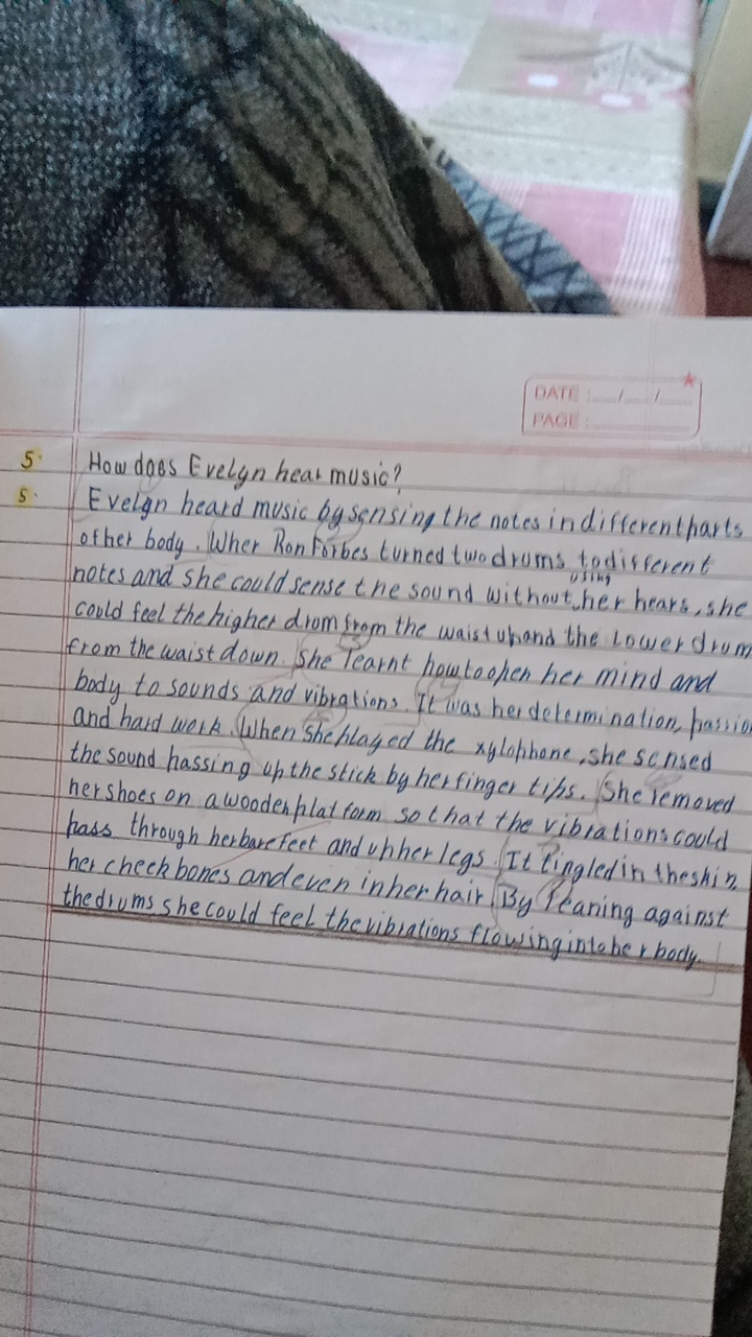 DATE : __/__/__
PAGE :
5. How does Evelyn hear music?
5. Evelyn heard music by sensing the notes in different parts
of her body. When Ron Forbes turned two drums to different
using
notes and she could sense the sound without her hears, she
could feel the higher drum from the waist up and the lower drum
from the waist down. She learnt how to open her mind and
body to sounds and vibrations. It was her determination, passion
and hard work. When she played the xylophone, she sensed
the sound passing up the stick by her finger tips. She removed
her shoes on a wooden platform so that the vibrations could
pass through her bare feet and up her legs. It tingled in the skin,
her cheek bones and even in her hair. By leaning against
the drums she could feel the vibrations flowing into her body.